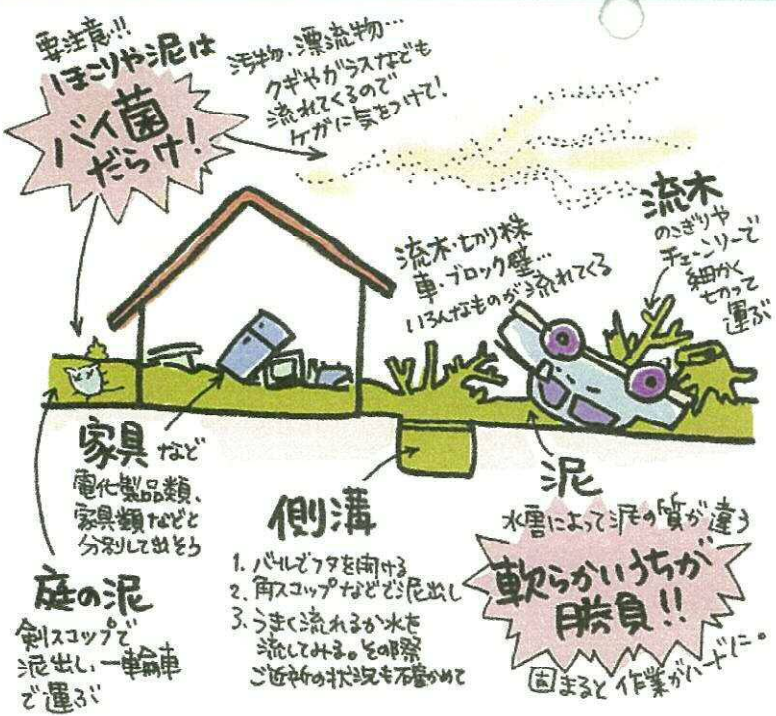 要注意!!
ほこりや泥は
バイ菌
だらけ!
汚物、漂流物…
クギやガラスなども
流れてくるので
ケガに気をつけて!
流木・切り株
車・ブロック壁…
いろんなものが流れてくる
流木
のこぎりや
チェーンソーで
細かく
切って
運ぶ
家具など
電化製品類、
家具類などと
分別して出そう
庭の泥
剣スコップで
泥出し、一輪車
で運ぶ
側溝
1. バールでフタを開ける
2. 角スコップなどで泥出し
3. うまく流れるか水を
流してみる。その際
ご近所の状況も確かめて
泥
水害によって泥もの質が違う
軟らかいうちが
勝負!!
固まると作業がハードに。